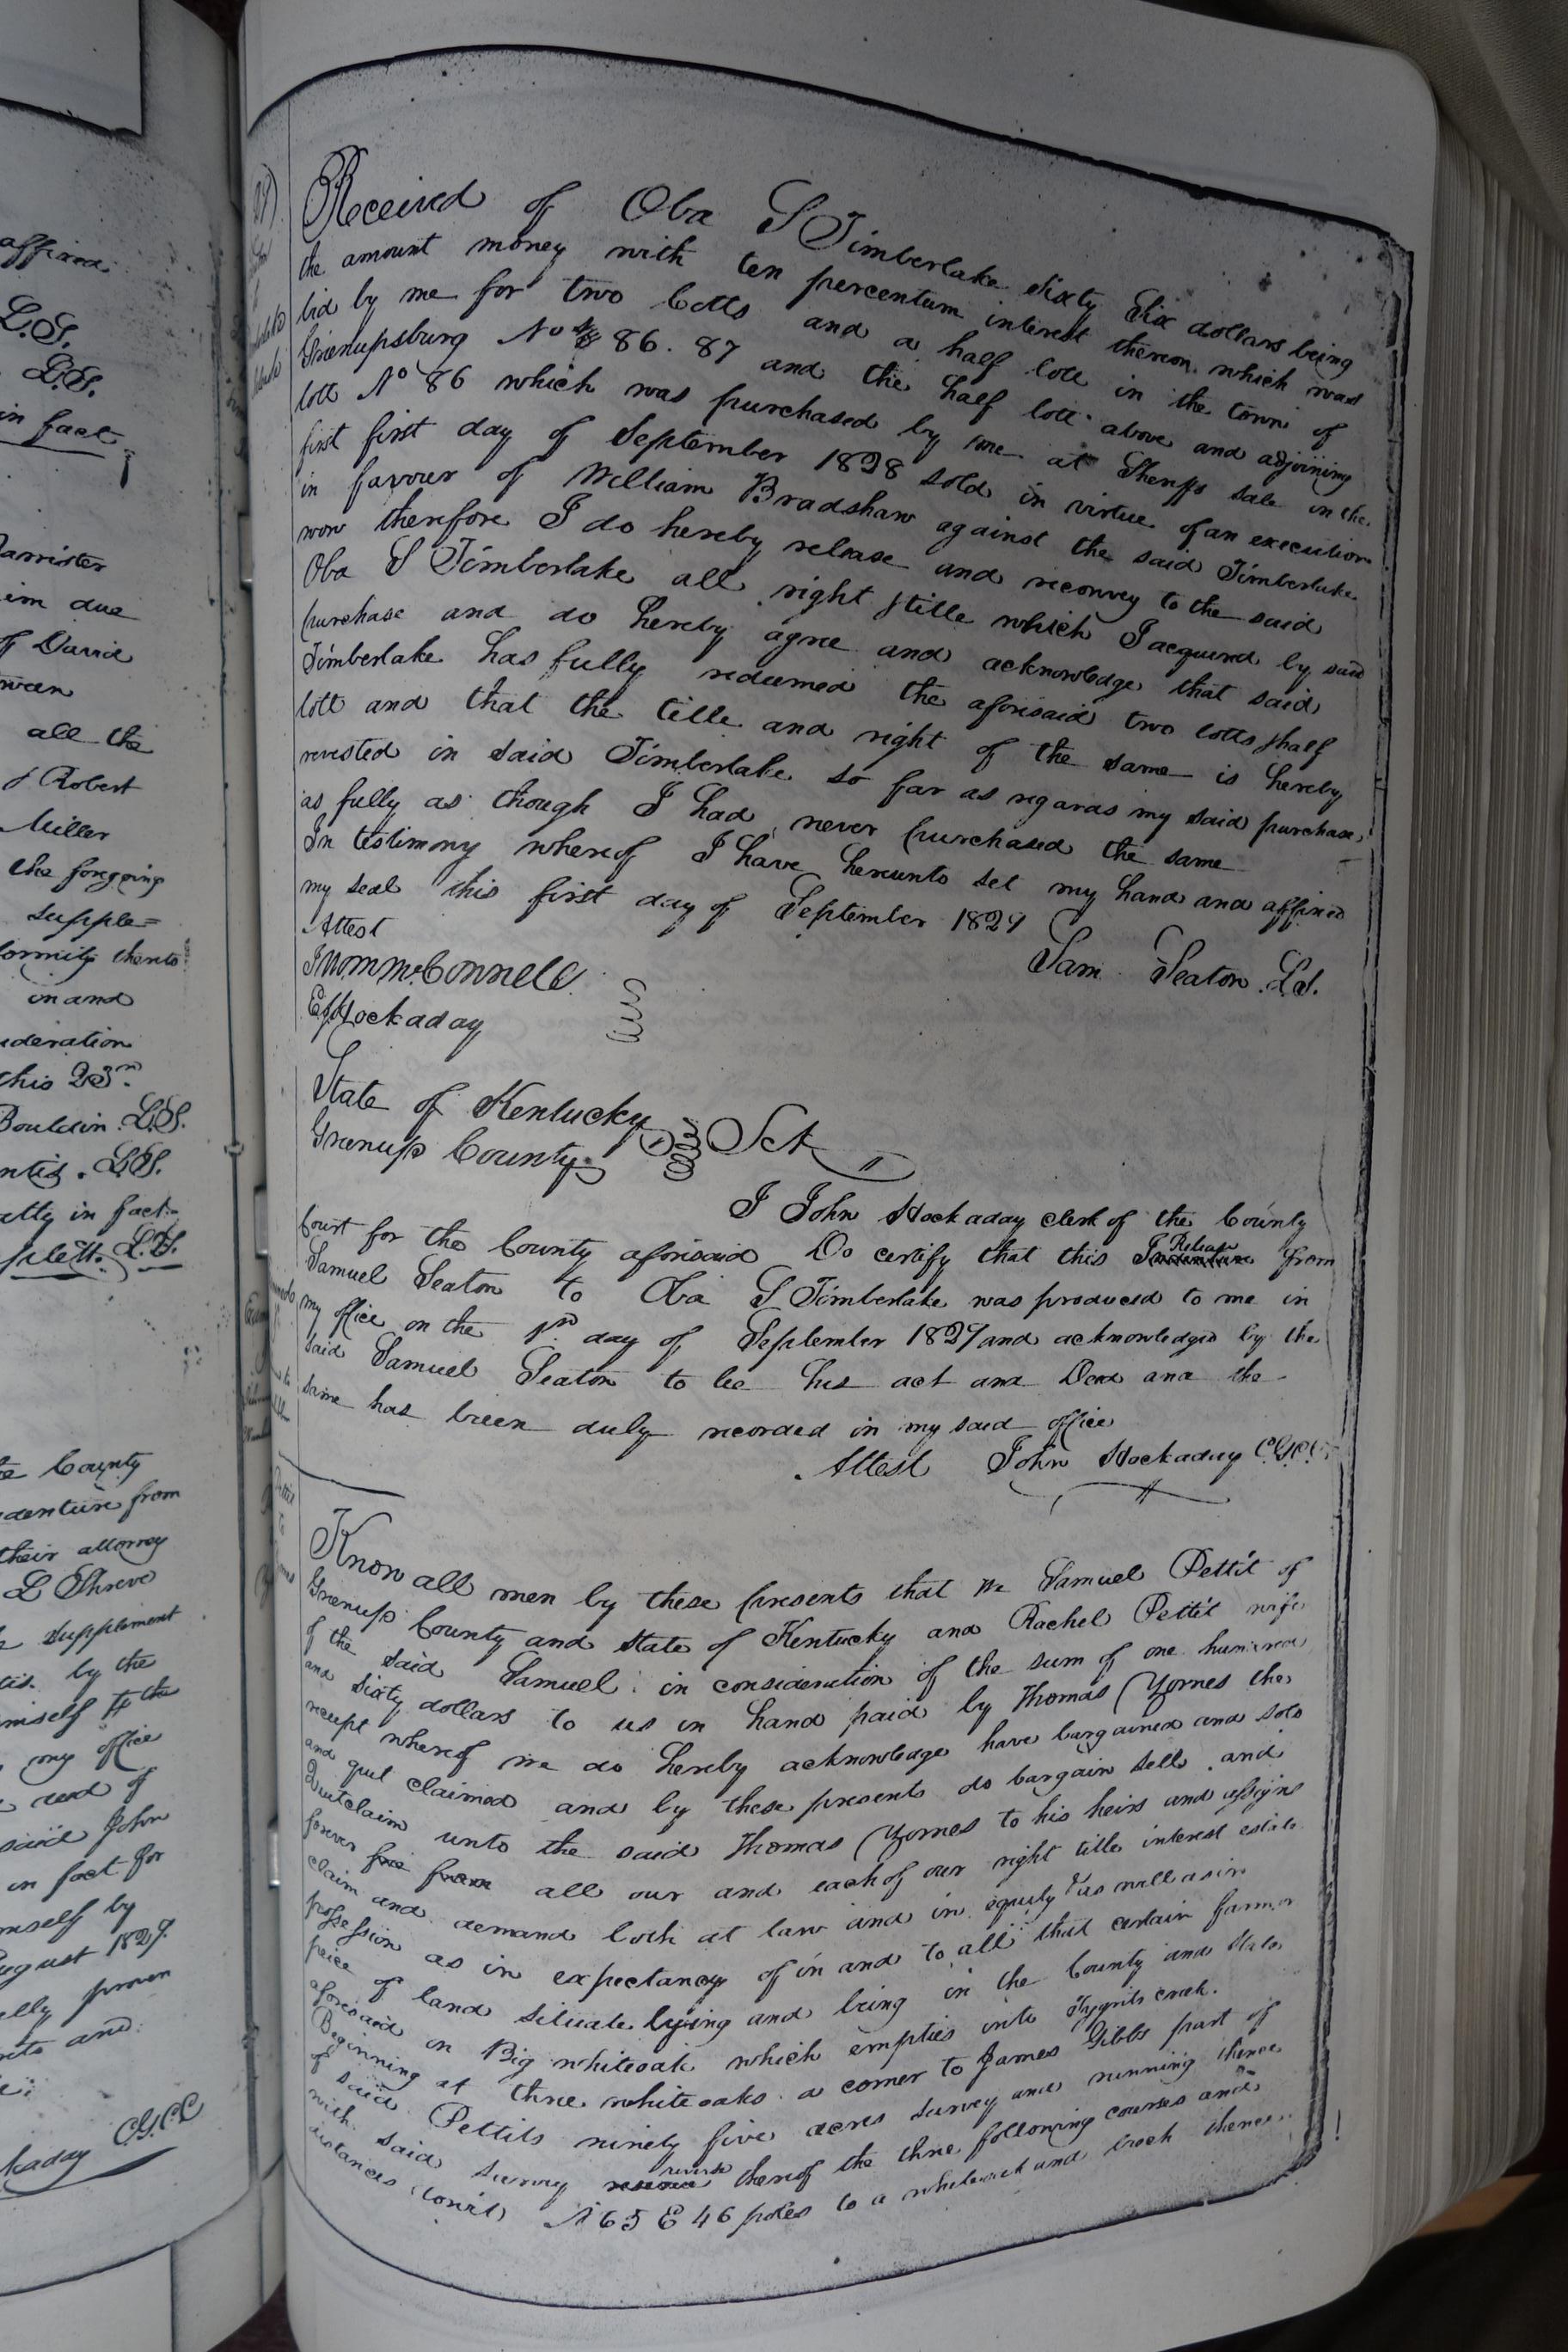 affixed
L.S.
L.S.
in fact
Bannister
im due
of David
all the
Robert
Miller
the foregoing
supple=
formity thereto
in and
ideration
this 23rd
Bouldin. L.S.
L.S.
atty in fact
L.S.
County
denture from
their attorney
L Shreve
supplement
by the
imself to the
my office
deed of
said John
in fact for
mself by
August 1829.
proven
and
CGCC
kaday
Received of Oba S Timberlake Sixty Six dollars being
the amount money with ten percentum interest thereon which was
bid by me for two Lotts and a half lott in the town of
Greenupsburg No 86. 87 and the half lott above and adjoining
lott No 86 which was purchased by me at Sheriffs sale on the
first first day of September 1828 sold in virtue of an execution
in favour of William Bradshaw against the said Timberlake
now therefore I do hereby release and reconvey to the said
Oba S Timberlake all right & title which I acquired by said
purchase and do hereby agree and acknowledge that said
Timberlake has fully redeemed the aforesaid two lotts & half
lott and that the title and right of the same is hereby
revested in said Timberlake so far as regards my said purchase,
as fully as though I had never purchased the same
In testimony whereof I have hereunto set my hand and affixed
my seal this first day of September 1829
Attest
Sam Seaton L.S.
McConnell
Hockaday
State of Kentucky
Greenup County Sct
I John Hockaday clerk of the County
Court for the County aforesaid Do certify that this Indenture Release from
Samuel Seaton to Oba S Timberlake was produced to me in
my office on the 1st day of September 1829 and acknowledged by the
said Samuel Seaton to be his act and Deed and the
same has been duly recorded in my said office
Attest John Hockaday C.G.C.C.
Know all men by these presents that we Samuel Pettit of
Greenup County and State of Kentucky and Rachel Pettit wife
of the said Samuel in consideration of the sum of one hundred
and sixty dollars to us in hand paid by Thomas Yornes the
receipt whereof we do hereby acknowledge have bargained and sold
and quit claimed and by these presents do bargain sell and
Quitclaim unto the said Thomas Yornes to his heirs and assigns
forever free from all our and each of our right title interest estate
claim and demand both at law and in equity & as well as in
possession as in expectancy of in and to all that certain farm or
peice of land situate lying and being in the County and State
aforesaid on Big whiteoak which empties into Tygerts creek.
Beginning at three white oaks a corner to James Gibbs part of
of said Pettits ninety five acres survey and running thence
with said survey reverse thereof the three following courses and
distances (towit) N 65 E 46 poles to a whiteoak and beech thence